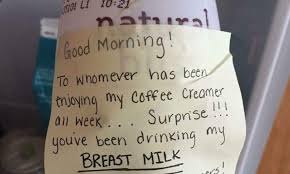 10:21
natural
Good Morning!
To whomever has been
enjoying my Coffee Creamer
all week.... Surprise!!!
you've been drinking my
BREAST MILK